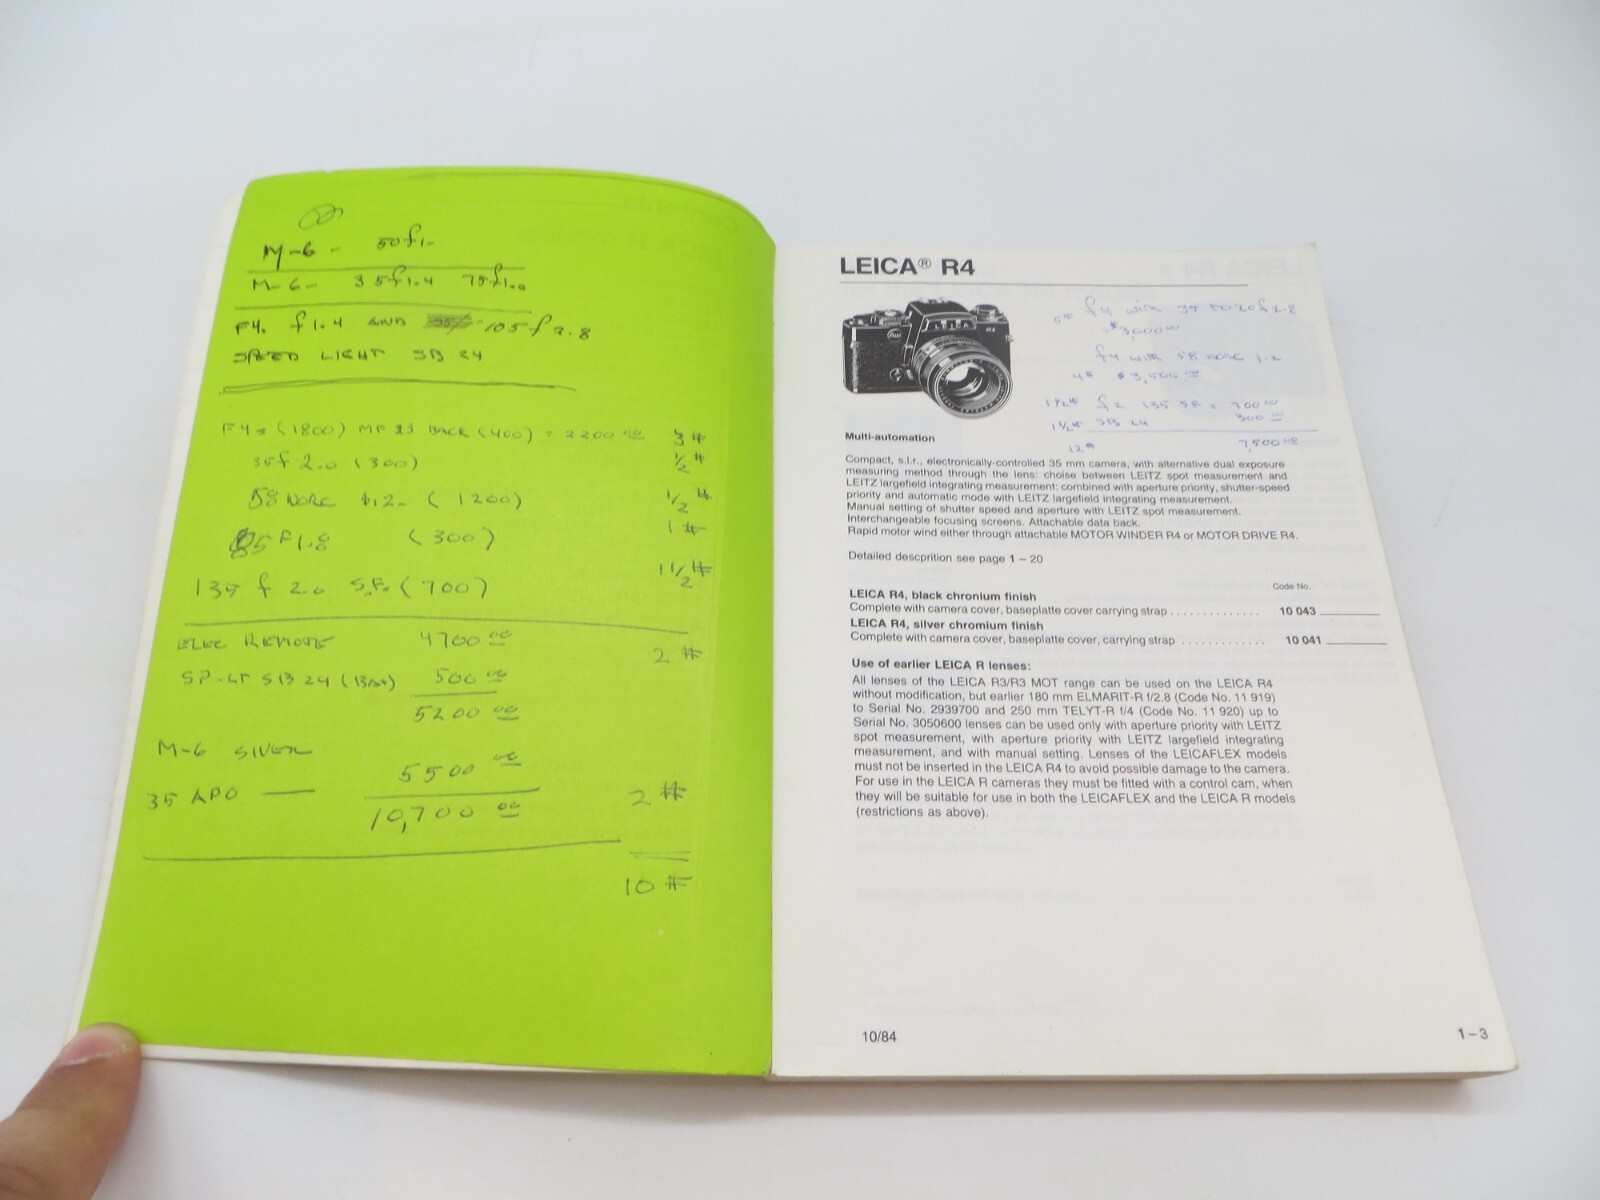 M-6 - 50f1-
M-6- 35f1.4 75f1.
F4. f1.4 AND 105f2.8
SPEED LIGHT SB 24
F4s (1800) MF 23 BACK (400) = 2200 00 3#
35f 2.0 (300) 1/2 #
58 NOKC 1.2- (1200) 1/2 #
85 F1.8 (300) 1 #
135 f 2.0 S.F. (700) 1 1/2 #
ELEC REMOTE 4700 00 2 #
SP-LT SB 24 (BAT) 500 00
5200 00
M-6 SIVER
5500 00
35 APO — 2 #
10,700 00
10 #
LEICA® R4
f4 with 35 to 20 f2.8
$3,000 00
f4 with 58 NOKC 1.2
4# $3,500 00
1 1/2# f2 135 SF = 700 00
300 00
1 1/2# SB 24
12# 7,500 00
LEICA
R4
Multi-automation
Compact, s.l.r., electronically-controlled 35 mm camera, with alternative dual exposure
measuring method through the lens: choise between LEITZ spot measurement and
LEITZ largefield integrating measurement: combined with aperture priority, shutter-speed
priority and automatic mode with LEITZ largefield integrating measurement.
Manual setting of shutter speed and aperture with LEITZ spot measurement.
Interchangeable focusing screens. Attachable data back.
Rapid motor wind either through attachable MOTOR WINDER R4 or MOTOR DRIVE R4.
Detailed descprition see page 1 – 20
Code No.
LEICA R4, black chronium finish
Complete with camera cover, baseplatte cover carrying strap . . . . . . . . . . . . . 10 043
LEICA R4, silver chromium finish
Complete with camera cover, baseplatte cover, carrying strap . . . . . . . . . . . . 10 041
Use of earlier LEICA R lenses:
All lenses of the LEICA R3/R3 MOT range can be used on the LEICA R4
without modification, but earlier 180 mm ELMARIT-R f/2.8 (Code No. 11 919)
to Serial No. 2939700 and 250 mm TELYT-R f/4 (Code No. 11 920) up to
Serial No. 3050600 lenses can be used only with aperture priority with LEITZ
spot measurement, with aperture priority with LEITZ largefield integrating
measurement, and with manual setting. Lenses of the LEICAFLEX models
must not be inserted in the LEICA R4 to avoid possible damage to the camera.
For use in the LEICA R cameras they must be fitted with a control cam, when
they will be suitable for use in both the LEICAFLEX and the LEICA R models
(restrictions as above).
10/84
1–3